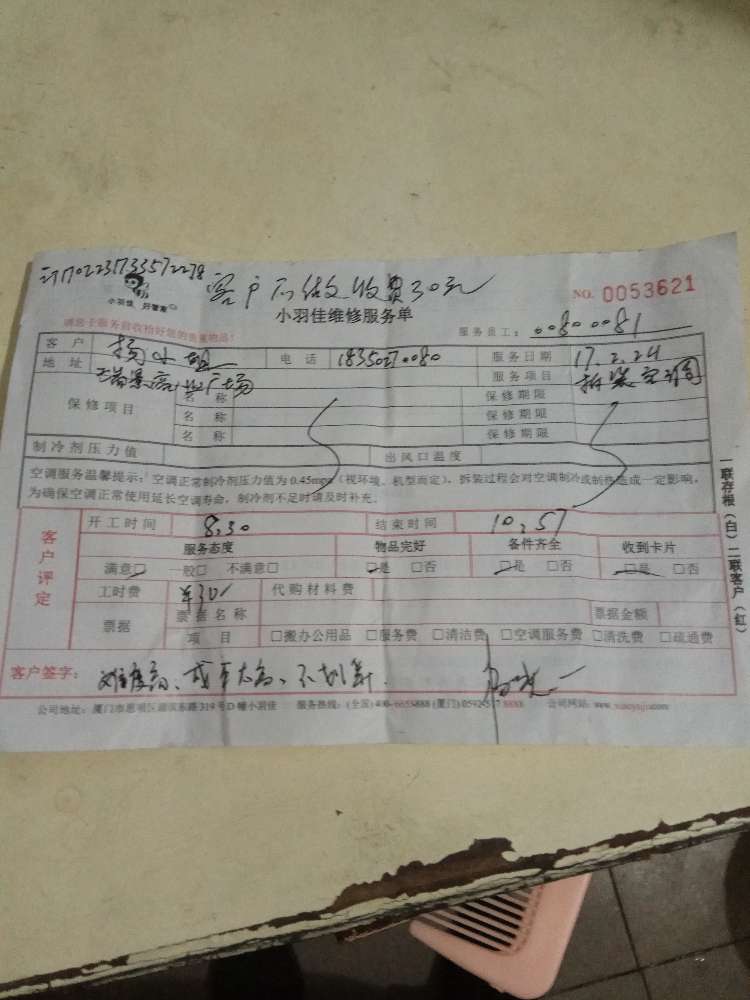 订1702231733572278
客户不做.收费30元
小羽佳 好管家
NO. 0053621
小羽佳维修服务单
请您于服务前收拾好您的贵重物品!
服务员工: 0080 0081
客户 杨小姐 电话 服务日期 17.2.24
地址 广场 服务项目 拆装空调
保修项目 名称 保修期限
名称 保修期限
名称 保修期限
制冷剂压力值 出风口温度
空调服务温馨提示:空调正常制冷剂压力值为0.45mpa(视环境、机型而定),拆装过程会对空调制冷或制热造成一定影响,
为确保空调正常使用延长空调寿命,制冷剂不足时请及时补充。
客户评定
开工时间 8.30 结束时间 10.57
服务态度 物品完好 备件齐全 收到卡片
满意□ 一般□ 不满意□ □是 □否 □是 □否 □是 □否
工时费 ¥30/ 代购材料费
票据 票据名称 票据金额
项目 □搬办公用品 □服务费 □清洁费 □空调服务费 □清洗费 □疏通费
客户签字: 难度高、成本太高、不划算.
公司地址:厦门市思明区湖滨东路319号D幢小羽佳 服务热线:(全国)400-6653888 (厦门)0592-5178888 公司网站:www.xiaoyujia.com
一联存根(白)二联客户(红)